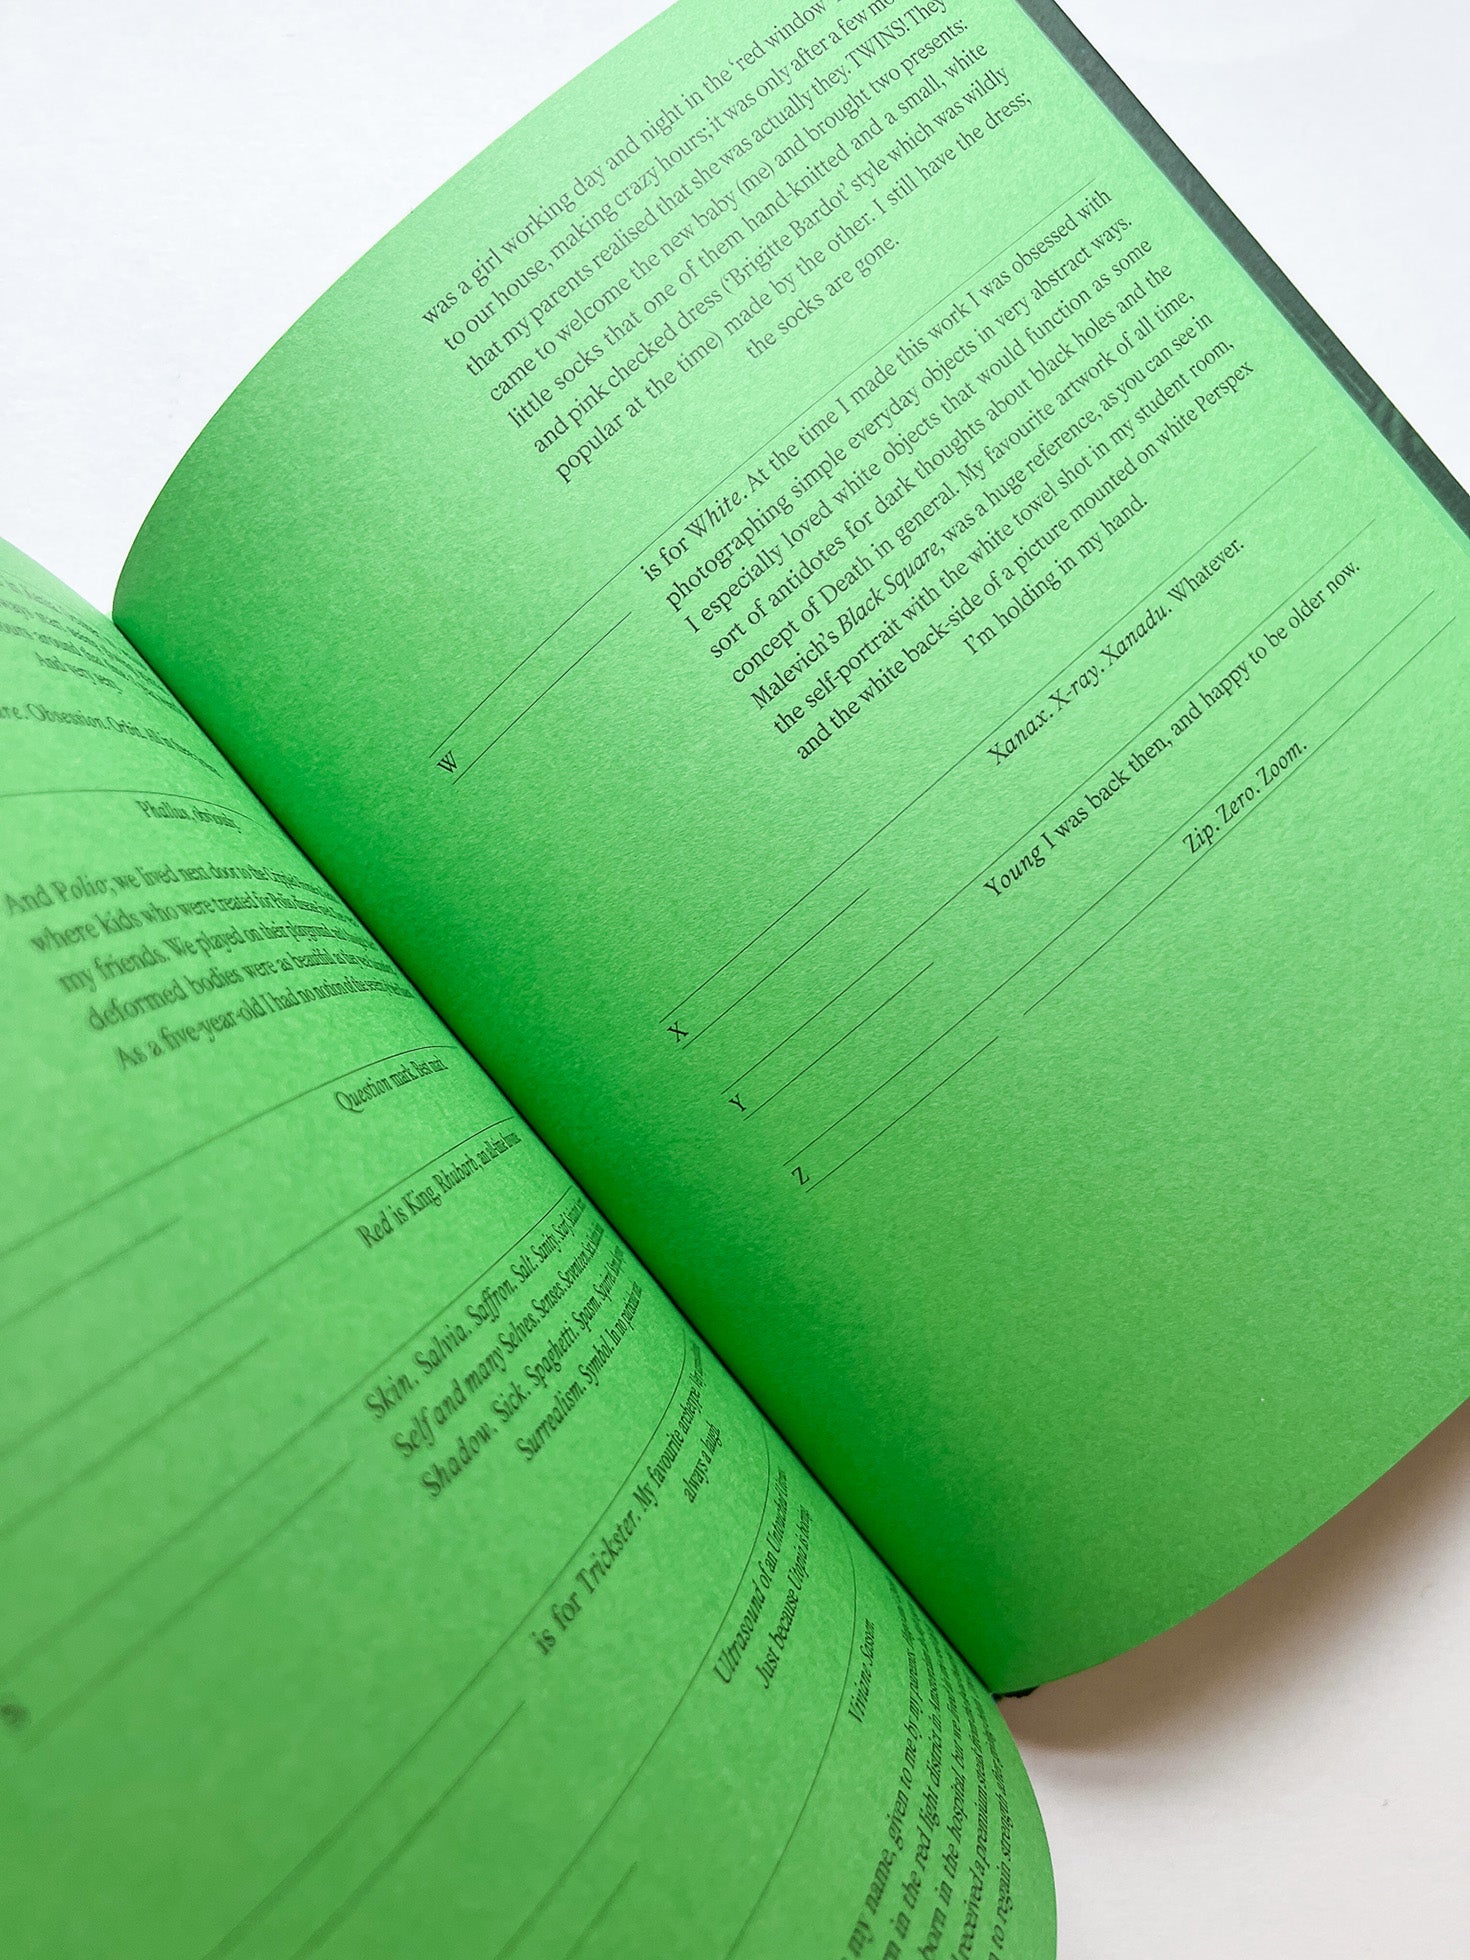 And very sexy
Obsession. Orbit.
Phallus, obviously
And Polio; we lived next door to the
where kids who were treated for Polio
my friends. We played on their playground
deformed bodies were as beautiful as
As a five-year-old I had no notion of the
Question mark. Best
Red is King. Rhubarb, an all-time
Skin. Salvia. Saffron. Salt. Sanity.
Self and many Selves. Senses. Seventeen.
Shadow. Sick. Spaghetti. Spasm.
Surrealism. Symbol. In no
is for Trickster. My favourite archetype.
always a laugh
Ultrasound of an Untouched
Just because Utopia is
Viviane Sassen
my name, given to me by my parents.
in the red light district in
born in the hospital, but we
received a premium
to regain strength after
was a girl working day and night in the ‘red window
to our house, making crazy hours; it was only after a few
that my parents realised that she was actually they. TWINS! They
came to welcome the new baby (me) and brought two presents:
little socks that one of them hand-knitted and a small, white
and pink checked dress (‘Brigitte Bardot’ style which was wildly
popular at the time) made by the other. I still have the dress;
the socks are gone.
W
is for White. At the time I made this work I was obsessed with
photographing simple everyday objects in very abstract ways.
I especially loved white objects that would function as some
sort of antidotes for dark thoughts about black holes and the
concept of Death in general. My favourite artwork of all time,
Malevich’s Black Square, was a huge reference, as you can see in
the self-portrait with the white towel shot in my student room,
and the white back-side of a picture mounted on white Perspex
I’m holding in my hand.
X
Xanax. X-ray. Xanadu. Whatever.
Y
Young I was back then, and happy to be older now.
Z
Zip. Zero. Zoom.